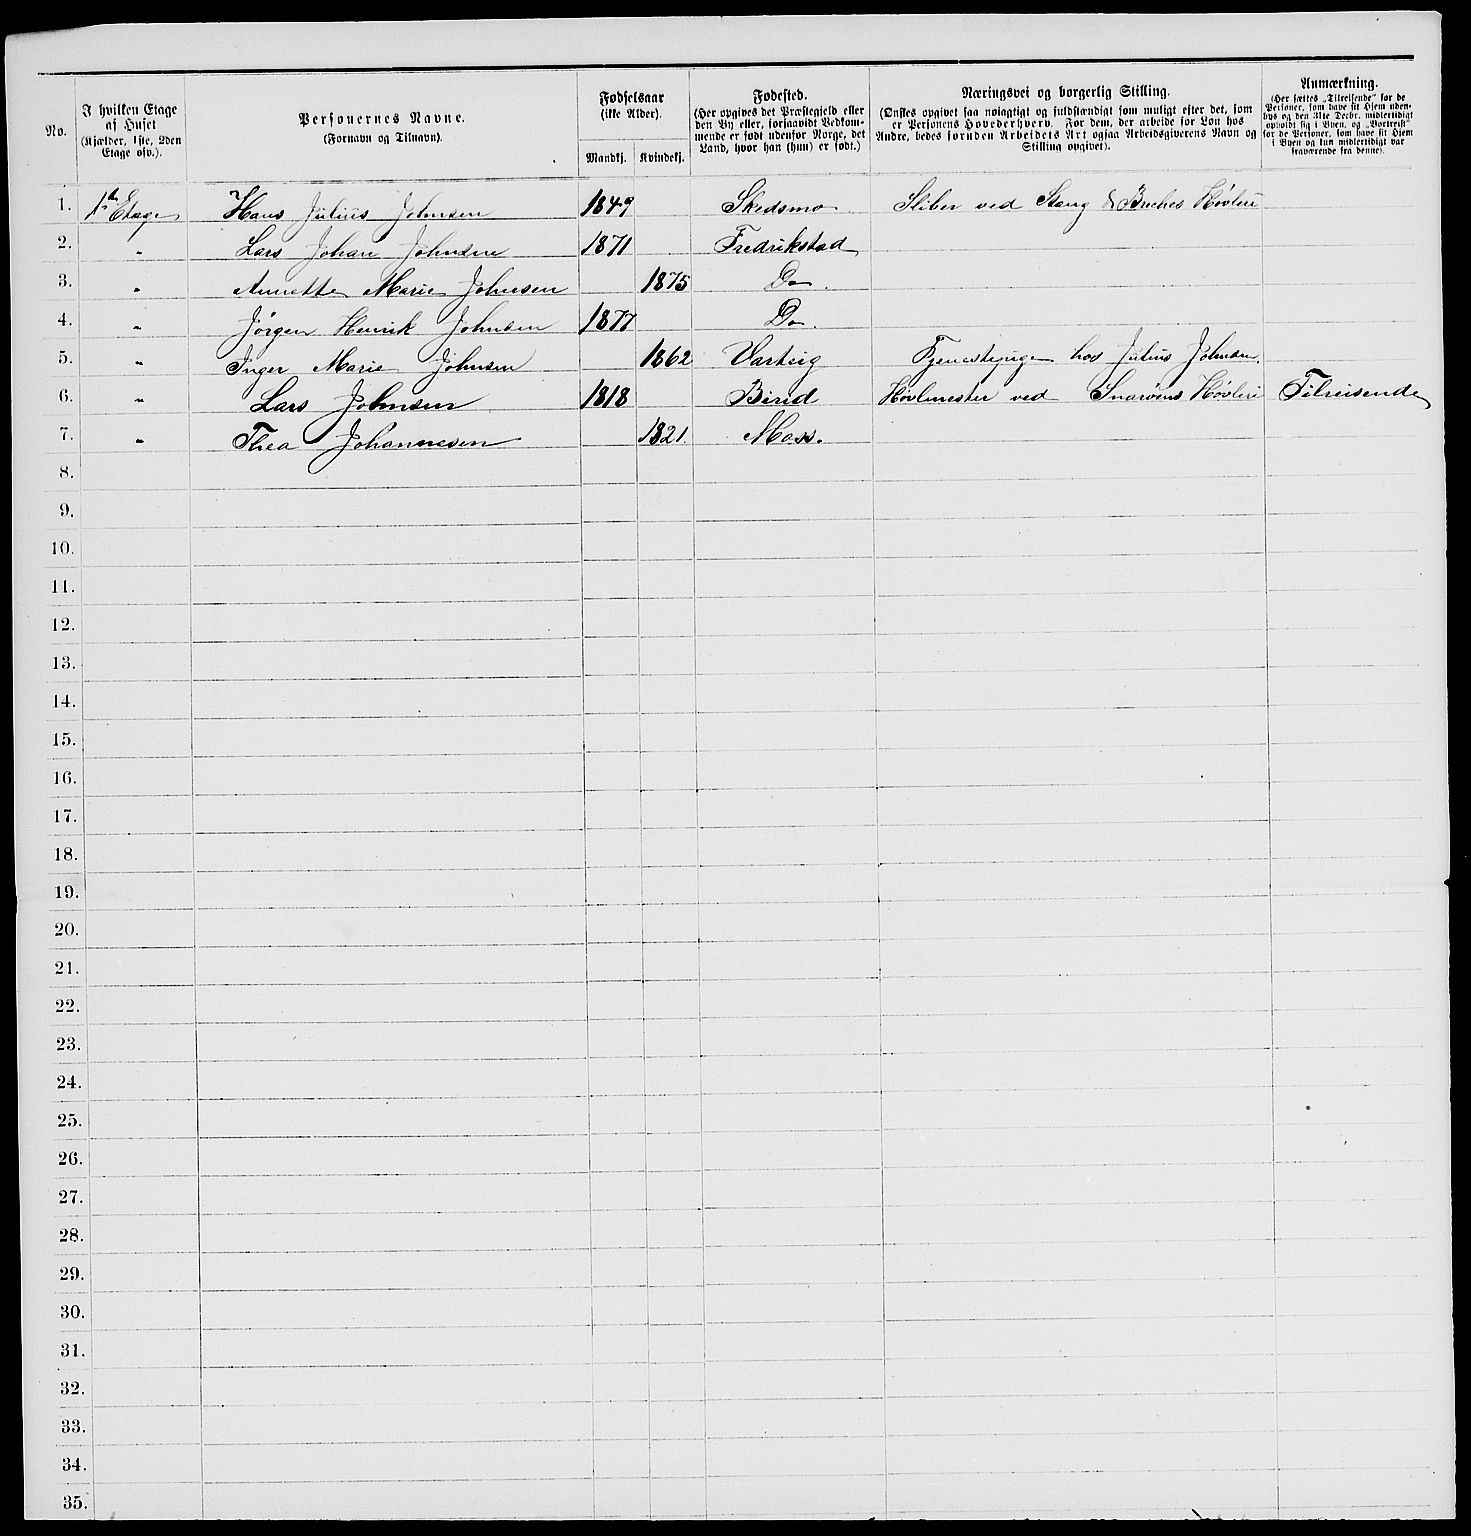 No.
I hvilken Etage af Huset (Kjælder, 1ste, 2den Etage osv.).
Personernes Navne. (Fornavn og Tilnavn).
Fødselsaar (ikke Alder).
Mandkj. Kvindekj.
Fødested. (Her opgives det Præstegjeld eller den By eller, forsaavidt Vedkommende er født udenfor Norge, det Land, hvor han (hun) er født.)
Næringsvei og borgerlig Stilling. (Ønskes opgivet saa nøiagtigt og fuldstændigt som muligt efter det, som er Personens Hovederhverv. For dem, der arbeide for Løn hos Andre, bedes foruden Arbeidets Art ogsaa Arbeidsgiverens Navn og Stilling opgivet).
Anmærkning. (Her sættes „Tilreisende" for de Personer, som have sit Hjem udenbys og den 31te Decbr. midlertidigt opholdt sig i Byen, og „Bortreist" for de Personer, som have sit Hjem i Byen og kun midlertidigt var fraværende fra denne).
1. 1ste Etage Hans Julius Johnsen 1849 Skedsmo Sliber ved Stang & Buches Høvleri
2. " Lars Johan Johnsen 1871 Fredrikstad
3. " Annette Marie Johnsen 1875 Do.
4. " Jörgen Henrik Johnsen 1877 Do.
5. " Inger Marie Johnsen 1862 Varteig Tjenestepige hos Julius Johnsen.
6. " Lars Johnsen 1818 Birid Høvlmester ved Høvleri Tilreisende
7. " Thea Johannesen 1821. Moss.
8.
9.
10.
11.
12.
13.
14.
15.
16.
17.
18.
19.
20.
21.
22.
23.
24.
25.
26.
27.
28.
29.
30.
31.
32.
33.
34.
35.